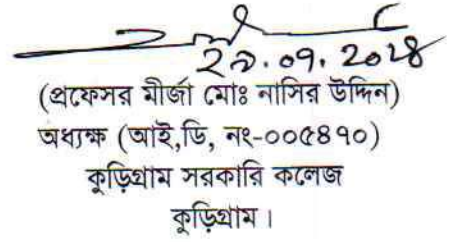 ২৯.০৭.২০২৪
(প্রফেসর মীর্জা মোঃ নাসির উদ্দিন)
অধ্যক্ষ (আই,ডি, নং-০০৫৪৭০)
কুড়িগ্রাম সরকারি কলেজ
কুড়িগ্রাম।